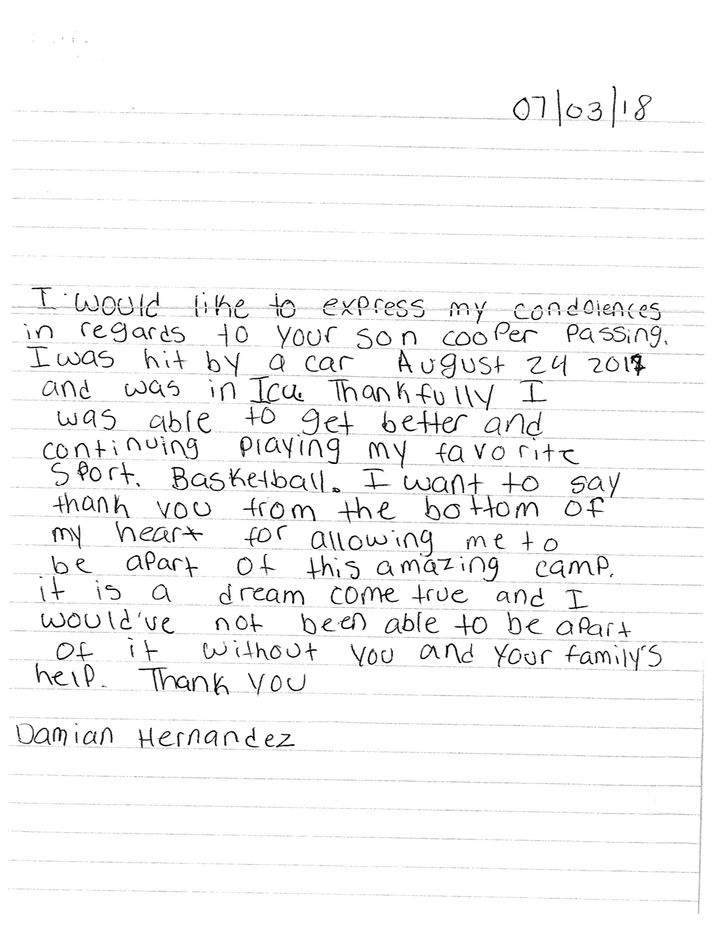 07/03/18
I would like to express my condolences
in regards to your son cooper passing.
I was hit by a car August 24 2017
and was in Icu. Thankfully I
was able to get better and
continuing playing my favorite
sport. Basketball. I want to say
thank you from the bottom of
my heart for allowing me to
be apart of this amazing camp.
it is a dream come true and I
would've not been able to be apart
of it without you and your family's
help. Thank you
Damian Hernandez